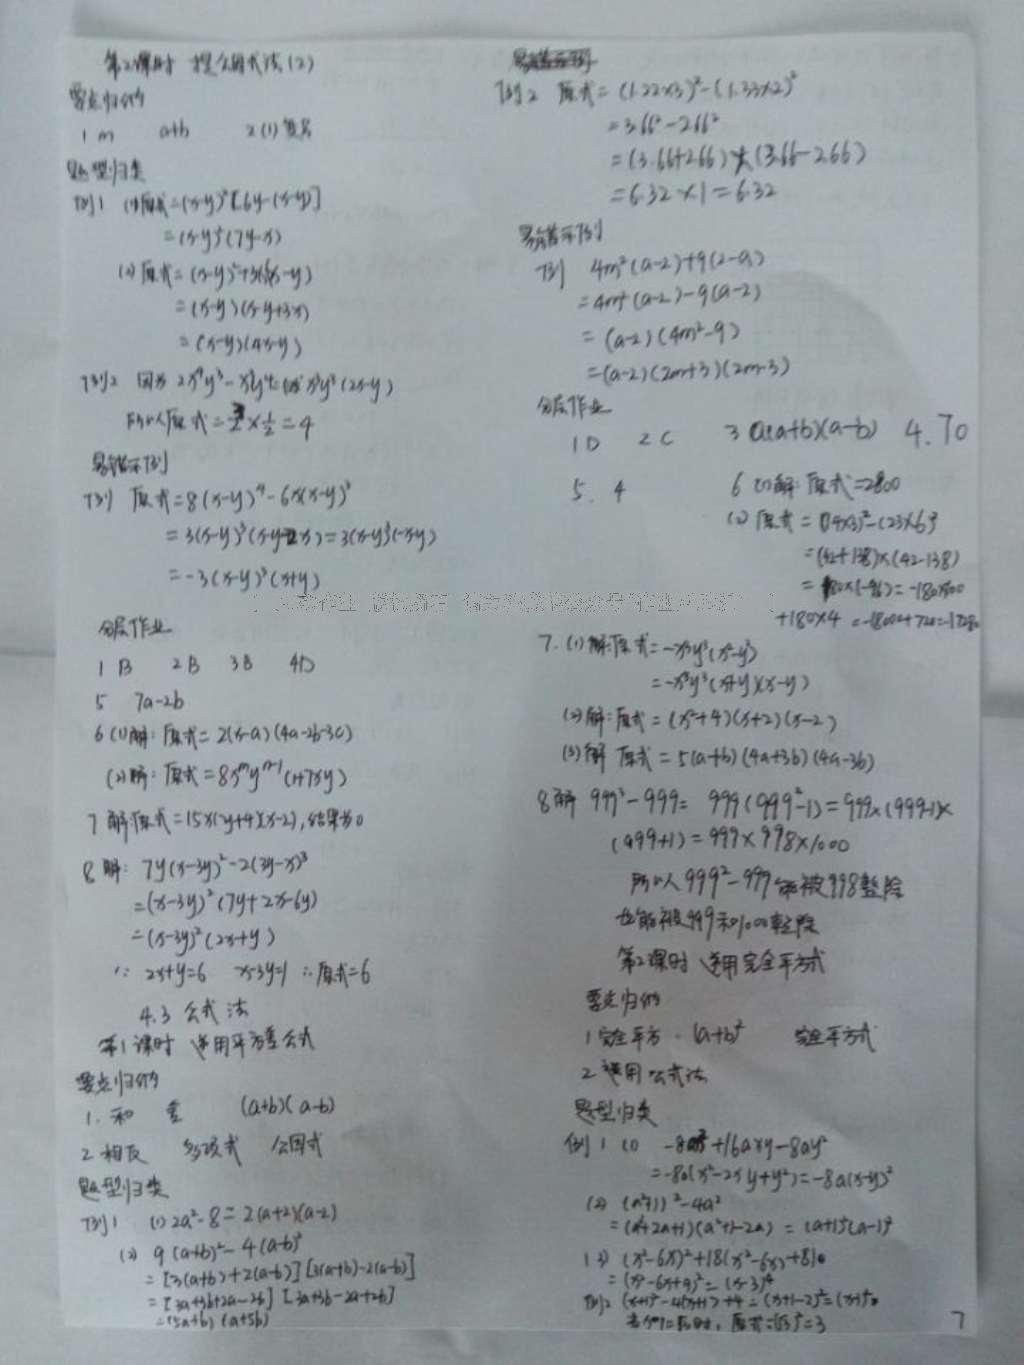 第2课时 提公因式法(2)
要点归纳
1 m a+b 2 (1) 
题型归类
例1 (1)原式=(x-y)²[6y-(x-y)]
=(x-y)²(7y-x)
(2)原式=(x-y)²+3x(x-y)
=(x-y)(x-y+3x)
=(x-y)(4x-y)
例2 因为 2x⁴y³-x³y⁴= x³y³(2x-y)
所以原式= ×½=4
易错示例
例 原式=8(x-y)⁴-6x(x-y)³
=3(x-y)³( )=3(x-y)³(-x-y)
=-3(x-y)³(x+y)
分层作业
1 B 2 B 3 B 4 D
5 7a-2b
6 (1)解:原式=2(x-a)(4a-2b-3c)
(2)解:原式=8xᵐyⁿ⁻¹(1+7xy)
7 解原式=15x(y+4)(x-2),结果为0
8 解: 7y(x-3y)²-2(3y-x)³
=(x-3y)²(7y+2x-6y)
=(x-3y)²(2x+y)
∵ 2x+y=6 x-3y=1 ∴原式=6
4.3 公式法
第1课时 运用平方差公式
要点归纳
1. 和 差 (a+b)(a-b)
2 相反 多项式 公因式
题型归类
例1 (1) 2a²-8=2(a+2)(a-2)
(2) 9(a+b)²-4(a-b)²
=[3(a+b)+2(a-b)][3(a+b)-2(a-b)]
=[3a+3b+2a-2b][3a+3b-2a+2b]
=(5a+b)(a+5b)
例2 原式=(1.22×3)²-(1.33×2)²
=3.66²-2.66²
=(3.66+2.66)×(3.66-2.66)
=6.32×1=6.32
易错示例
例 4m²(a-2)+9(2-a)
=4m²(a-2)-9(a-2)
=(a-2)(4m²-9)
=(a-2)(2m+3)(2m-3)
分层作业
1 D 2 C 3 a(a+b)(a-b) 4. 70
5. 4 6 (1)解:原式=2800
(2)原式=(14×3)²-(23×6)²
=(42+138)×(42-138)
=180×(-96)=-180×100
+180×4 =-18000+720=-17280
7. (1)解:原式=-x³y³(x²-y²)
=-x³y³(x+y)(x-y)
(2)解:原式=(x²+4)(x+2)(x-2)
(3)解 原式=5(a+b)(4a+3b)(4a-3b)
8 解 999³-999= 999(999²-1)=999×(999-1)×
(999+1)=999×998×1000
所以999²-999能被998整除
也能被999和1000整除
第2课时 运用完全平方式
要点归纳
1 完全平方 (a+b)² 完全平方式
2 运用公式法
题型归类
例1 (1) -8ax²+16axy-8ay²
=-8a(x²-2xy+y²)=-8a(x-y)²
(2) (a²+1)²-4a²
=(a²+2a+1)(a²+1-2a)=(a+1)²(a-1)²
(3) (x²-6x)²+18(x²-6x)+81
=(x²-6x+9)²=(x-3)⁴
例2 (x+1)²-4(x+1)+4=(x+1-2)²=(x-1)²
原式=(√3)²=3
7